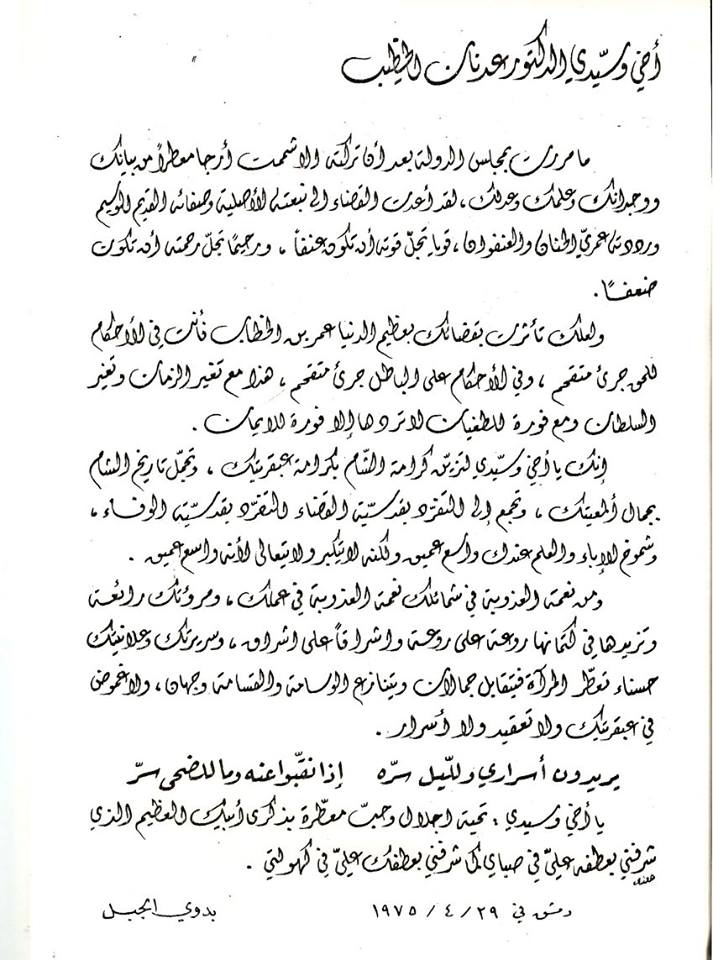 أخي وسيّدي الدكتور عدنان الخطيب
ما مررت بمجلس الدولة بعد أن تركته الا شممت أرجا معطراً من بيانك
ووجدانك وعلمك وعدلك، لقد أعدت القضاء الى نبعته الأصلية وصفائه القديم الوسيم
ورددته عمريّ الحنان والعنفوان، قويا تجلّ قوته أن تكون عنفاً، ورحيمًا تجلّ رحمته أن تكون
ضعفًا.
ولعلك تأثرت بقضائك بعظيم الدنيا عمر بن الخطاب فأنت في الأحكام
للحق جرئ متقحم، وفي الأحكام على الباطل جرئ متقحم، هذا مع تغير الزمان وتغير
السلطان ومع فورة للطغيان لا تردها إلا فورة للايمان.
إنك يا أخي وسيّدي لتزين كرامة الشام بكرامة عبقريتك، وتجمّل تاريخ الشام
بجمال ألمعيتك، وتجمع إلى التفرّد بقدسيّة القضاء التفرّد بقدسيّة الوفاء،
وشموخ الإباء والعلم عندك واسع عميق ولكنه لا يتكبر ولا يتعالى لأنه واسع عميق.
ومن نعمة العذوبة في شمائلك نعمة العذوبة في عملك، ومروءتك رائعة
وتزيدها في كتمانها روعة على روعة واشراقاً على اشراق، وسريرتك وعلانيتك
حسناء تعطّر المرآة فيتقابل جمالان ويتنازع الوسامة والقسامة وجهان، ولا غموض
في عبقريتك ولا تعقيد ولا أسرار.
يريدون أسراري ولليل سرّه إذا نقّبوا عنه وما للضحى سرّ
يا أخي وسيدي: تحية اجلال وحبّ معطّرة بذكرى أبيك العظيم الذي
شرفني بعطفه عليّ في صباي كما شرفني بعطفك عليّ في كهولتي.
دمشق في ٢٩ / ٤ / ١٩٧٥ بدوي الجبل